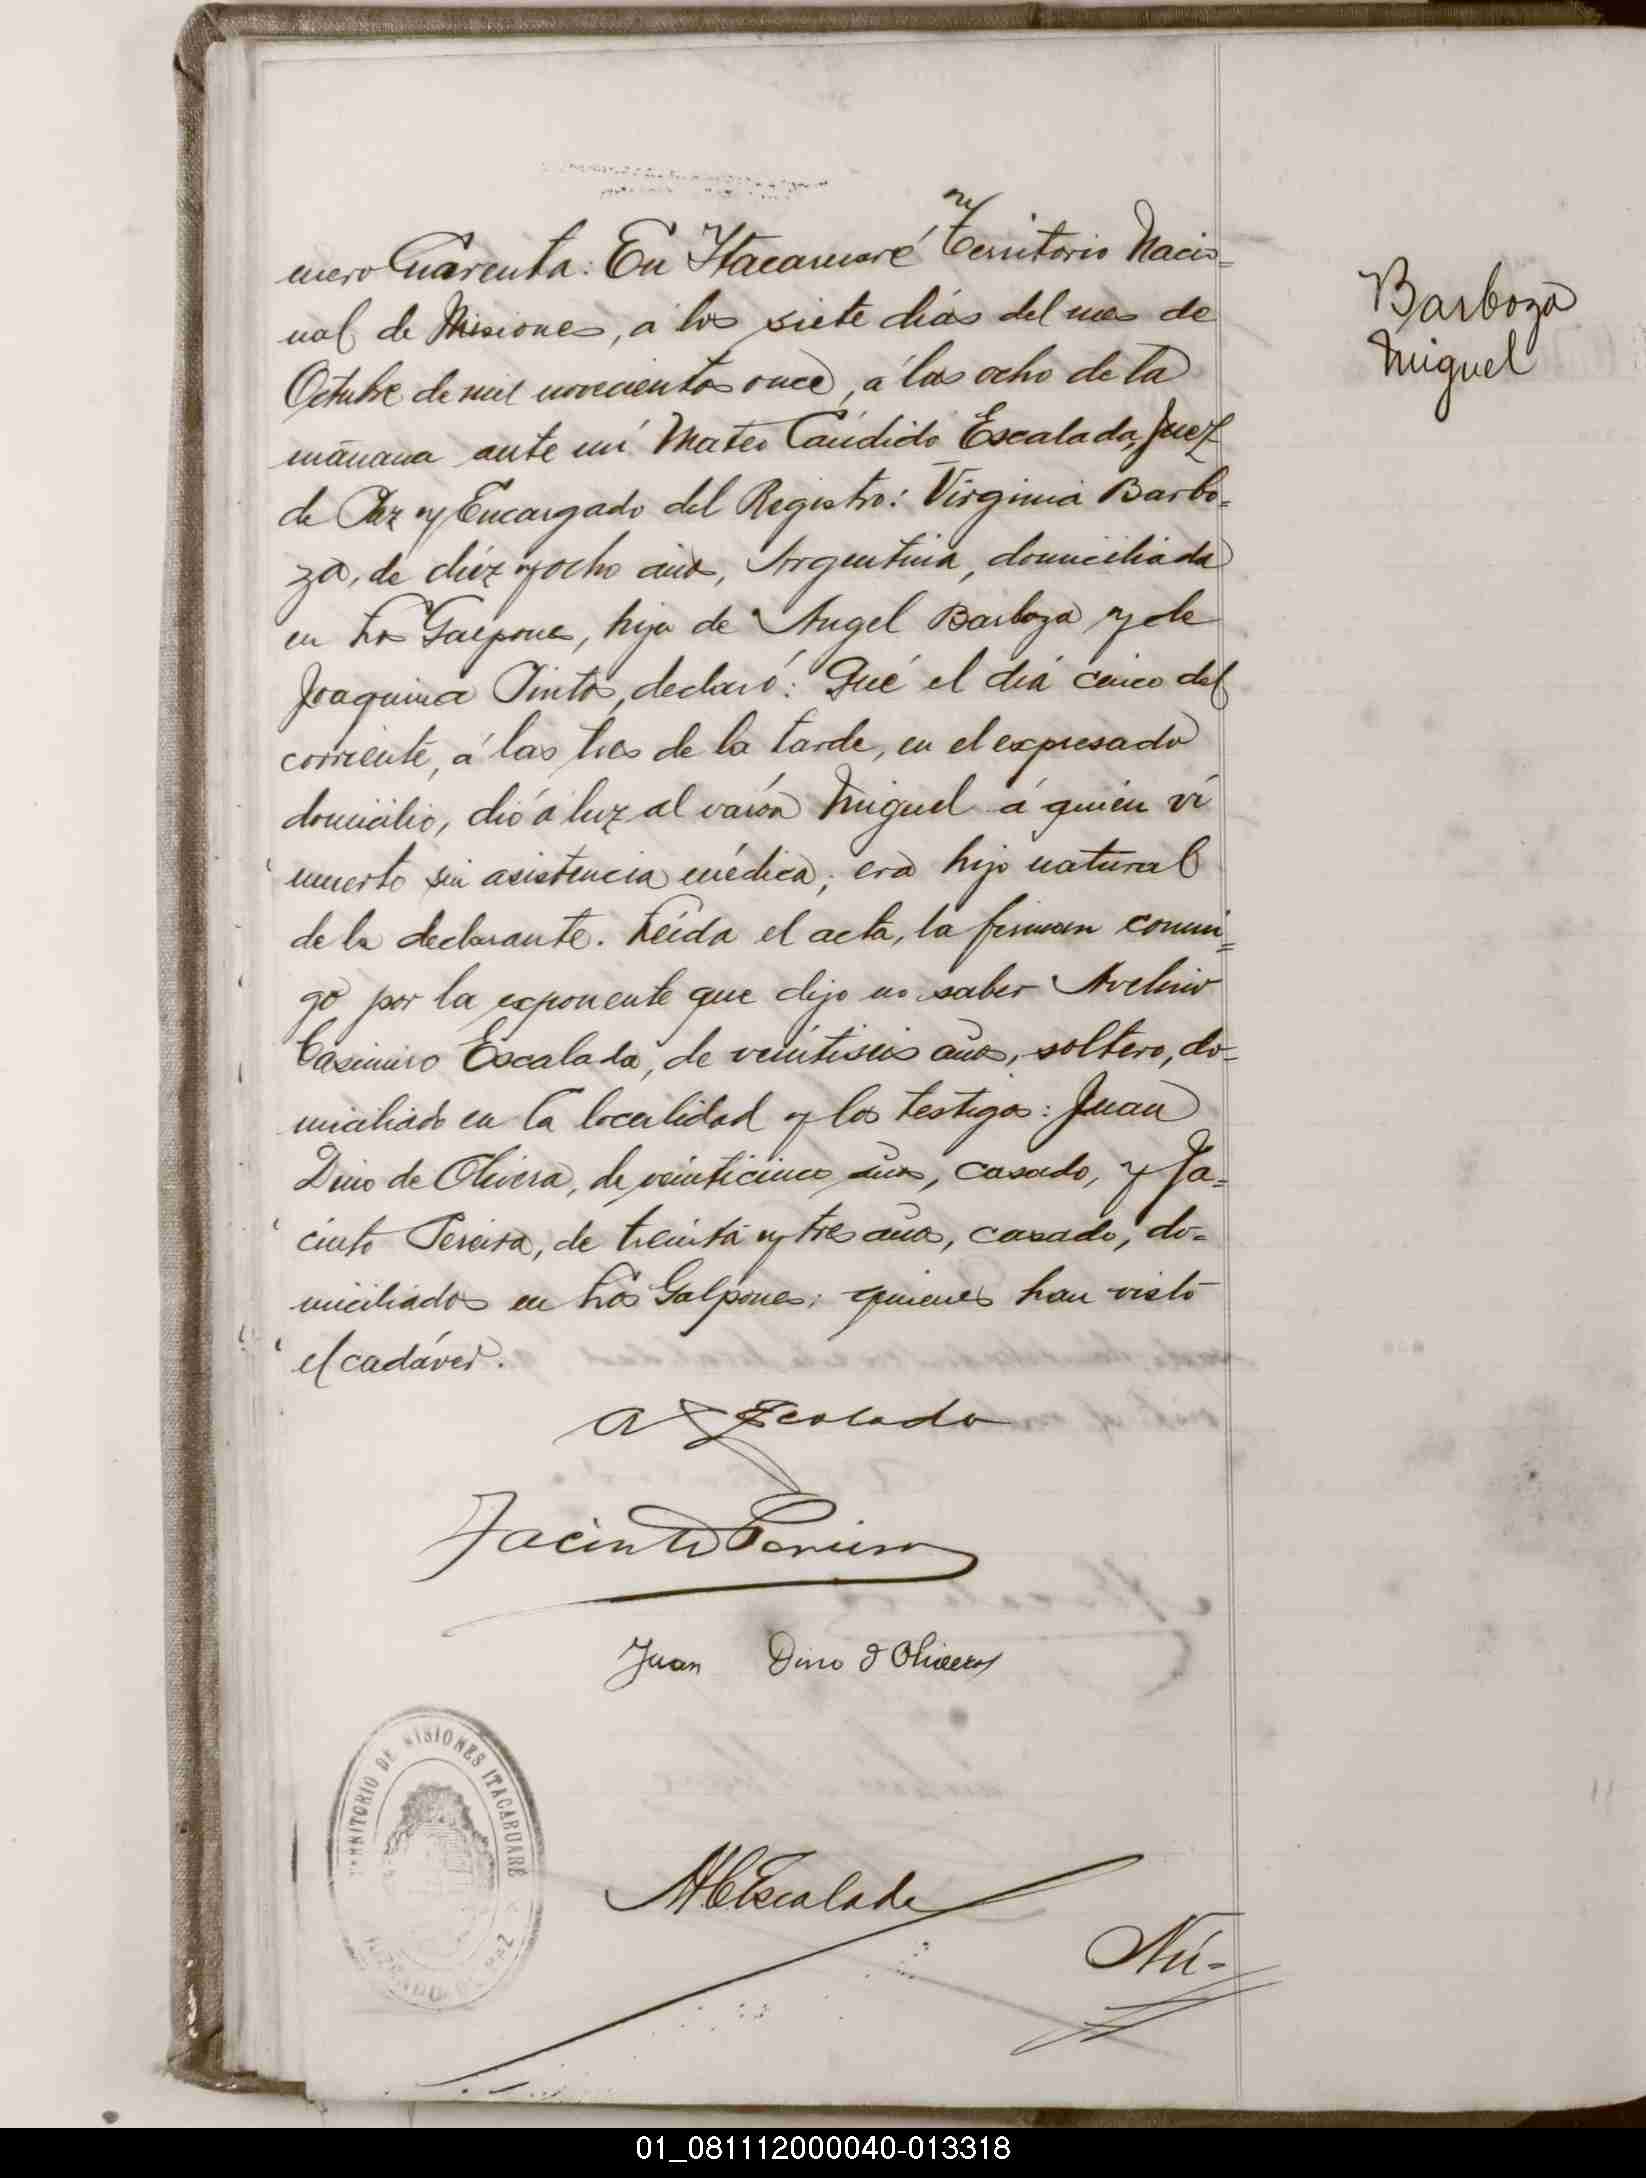 mero Cuarenta: En Itacaruaré Territorio Nacio=
nal de Misiones, á los siete dias del mes de
Octubre de mil novecientos once, á las ocho de la
mañana ante mi Mateo Cándido Escalada, Juez
de Paz y Encargado del Registro: Virginia Barbo=
za, de diéz y ocho años, Argentina, domiciliada
en Los Galpones, hija de Angel Barboza y de
Joaquina Pinto, declaró: Qué el dia cinco del
corriente, á las tres de la tarde, en el expresado
domicilio, dió á luz al varón Miguel á quién ví
muerto sin asistencia médica; era hijo natural
de la declarante. Leida el acta, la firman conmi=
go por la exponente que dijo no saber Avelino
Casimiro Escalada, de veintiseis años, soltero, do=
miciliado en la localidad y los testigos: Juan
Dino de Olivera, de veinticinco años, casado, y Ja=
cinto Pereira, de treinta y tres años, casado, do=
miciliados en Los Galpones; quienes han visto
el cadáver.
Barboza
Miguel
A Escalada
Jacinto Pereira
Juan Dino d Olivera
TERRITORIO DE MISIONES ITACARUARÉ
JUZGADO DE PAZ
M.C. Escalada
Nú=
01_081112000040-013318